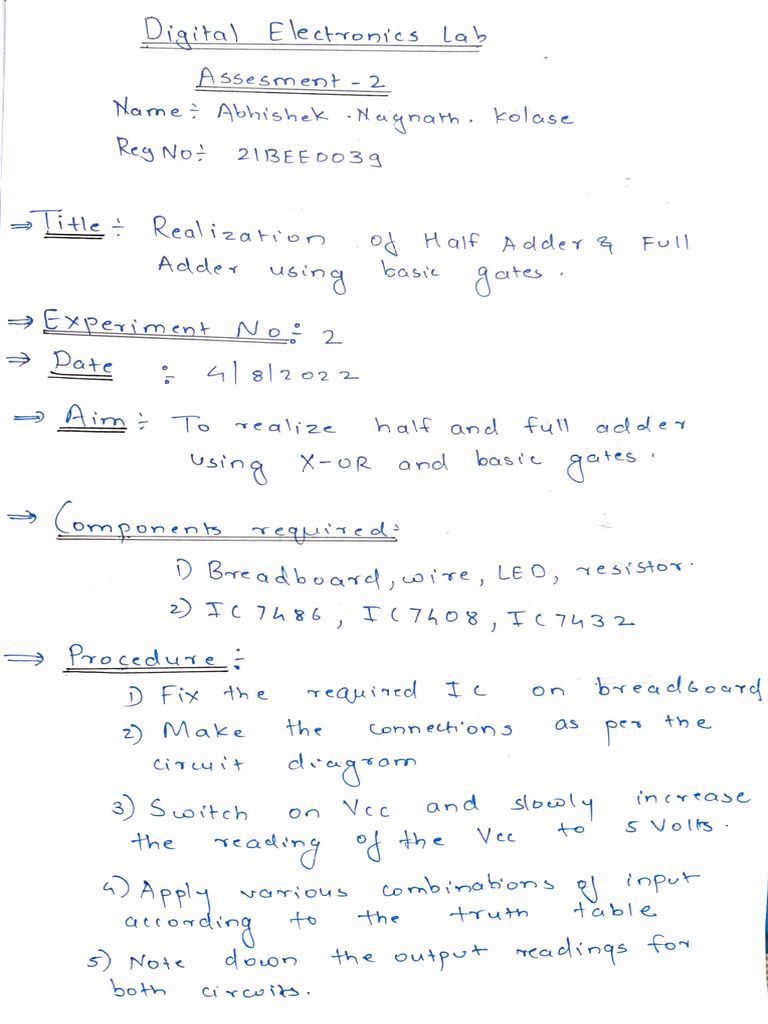 Digital Electronics Lab
Assesment - 2
Name :- Abhishek . Nagnath . Kolase
Reg No :- 21BEE0039
⇒ Title :- Realization of Half Adder & Full
Adder using basic gates .
⇒ Experiment No :- 2
⇒ Date :- 4/8/2022
⇒ Aim :- To realize half and full adder
using X-OR and basic gates .
⇒ Components required :-
1) Breadboard, wire, LED, resistor.
2) IC 7486 , IC7408 , IC7432
⇒ Procedure :-
1) Fix the required IC on breadboard
2) Make the connections as per the
circuit diagram
3) Switch on Vcc and slowly increase
the reading of the Vcc to 5 Volts .
4) Apply various combinations of input
according to the truth table
5) Note down the output readings for
both circuits.